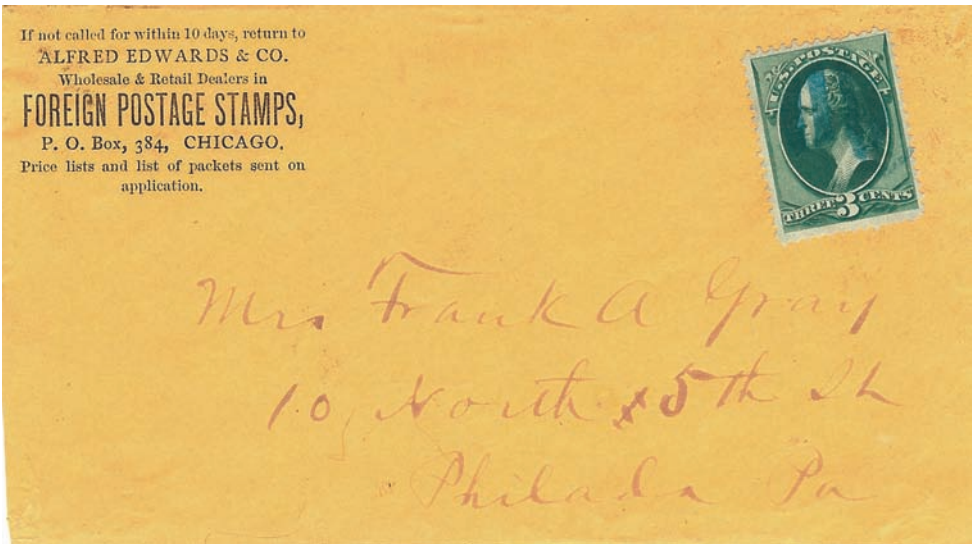 If not called for within 10 days, return to
ALFRED EDWARDS & CO.
Wholesale & Retail Dealers in
FOREIGN POSTAGE STAMPS,
P. O. Box, 384, CHICAGO.
Price lists and list of packets sent on
application.
U.S. POSTAGE
THREE 3 CENTS
Mrs Frank A Gray
10 North 5th St
Philada Pa